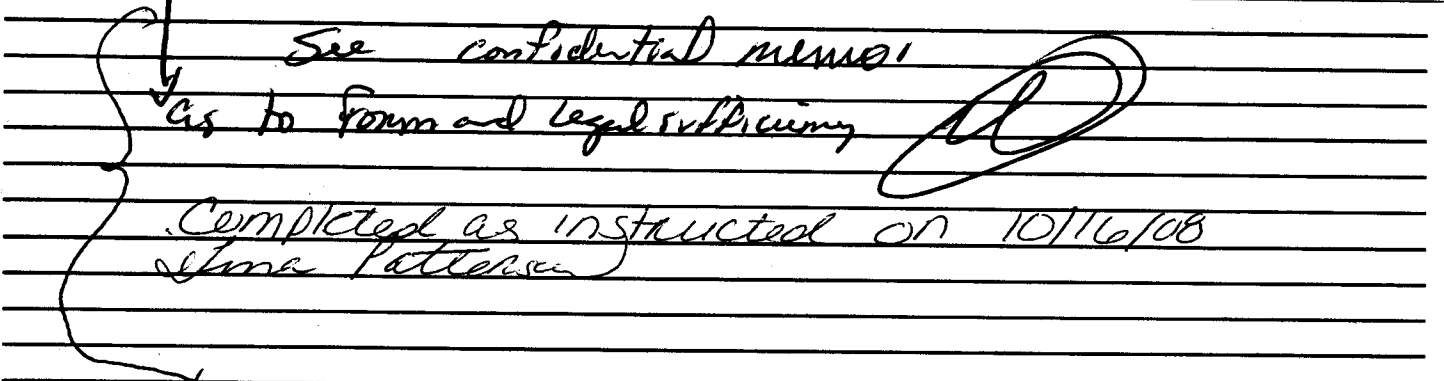 See confidential memo.
as to form and legal sufficiency
Completed as instructed on 10/16/08
Patterson